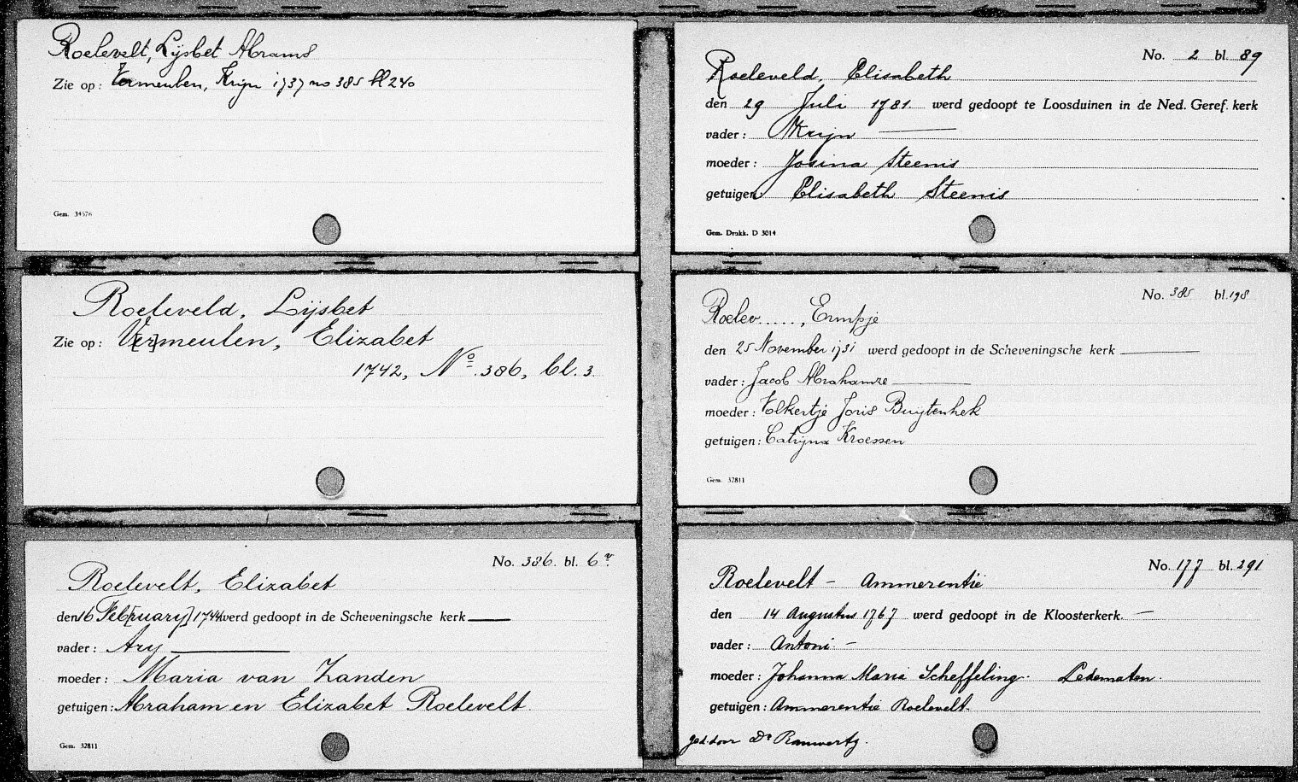 Roelevelt, Lijsbet Abrams
Zie op: Vermeulen, Krijn 1737 no 385 bl 240
Gem. 34976
Roeleveld, Lijsbet
Zie op: Vermeulen, Elizabet
1742, No. 386, bl. 3.
No. 386. bl. 6v.
Roelevelt, Elizabet
den 16 Feb[ruary] 1744 werd gedoopt in de Scheveningsche kerk
vader: Ary
moeder: Maria van Zanden
getuigen: Abraham en Elizabet Roelevelt
Gem. 32811
No. 2 bl. 89
Roeleveld, Elisabeth
den 29 Juli 1781. werd gedoopt te Loosduinen in de Ned. Geref. kerk
vader: Krijn
moeder: Josina Steenis
getuigen Elisabeth Steenis
Gem. Drukk. D 3014
No. 385 bl. 198
Roelev....., Ermpje
den 25 November 1731 werd gedoopt in de Scheveningsche kerk
vader: Jacob Abrahamze
moeder: Volkertje Joris Buytenhek
getuigen: Catrijna Kroessen
Gem. 32811
No. 177 bl. 291
Roelevelt - Ammerentie
den 14 Augustus 1767 werd gedoopt in de Kloosterkerk. -
vader: Antoni -
moeder: Johanna Maria Scheffeling. Ledematen.
getuigen: Ammerentie Roelevelt.
ged. door Ds